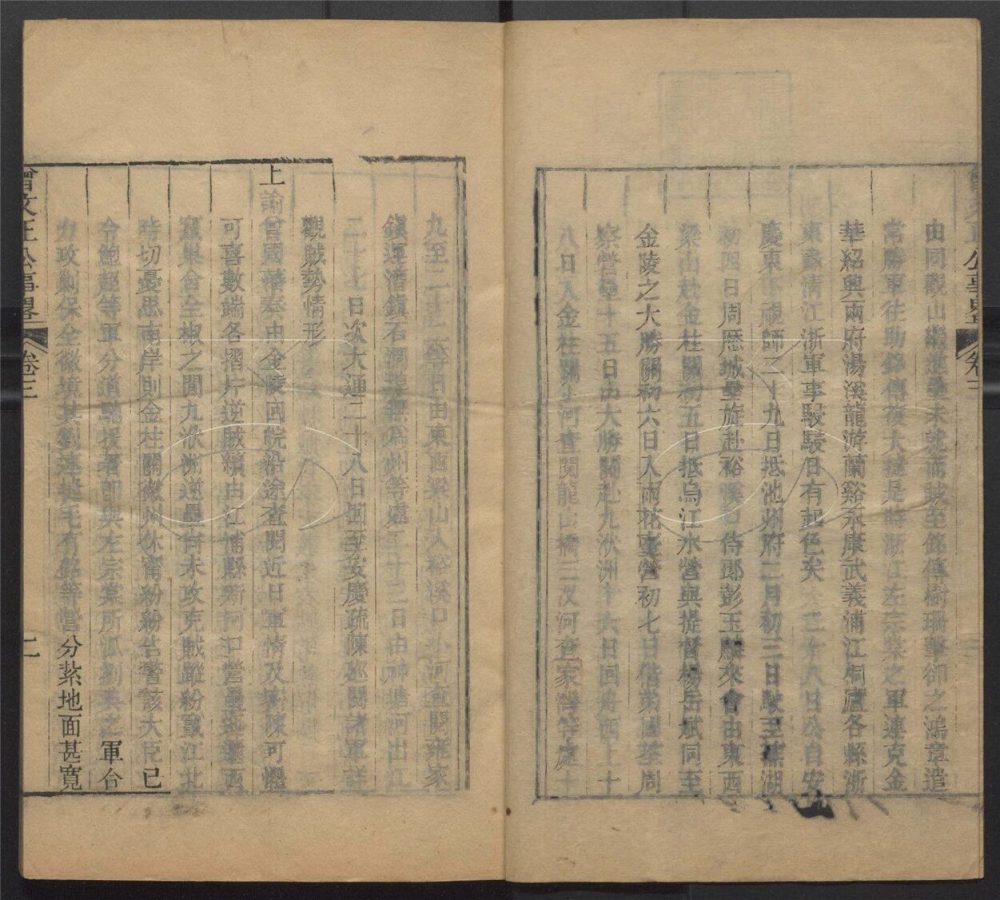 由同觀山進至未就而賊至銘傳樹珊擊卻之鴻章遣
常勝軍往助銘傳復大捷是時浙江左宗棠之軍連克金
華紹興兩府湯溪龍游蘭谿永康武義浦江桐廬各縣浙
東肅清江浙軍事駸駸日有起色矣二十八日公自安
慶東下視師二十九日抵池州府二月初三日駛至蕪湖
初四日周歷城壘旋赴裕溪口侍郎彭玉麟來會由東西
梁山赴金柱關初五日抵烏江水營與提督楊岳斌同至
金陵之大勝關初六日入雨花臺營初七日偕弟國荃周
察營壘十五日由大勝關赴九洑洲十六日回舟西上十
八日入金柱關小河查閱龍山橋三汊河查家灣等處十
九至二十二等日由東西梁山入裕溪口小河查閱雍家
鎮運漕鎮石澗埠無爲州等處二十三日由神塘河出江
二十七日次大通二十八日回至安慶疏陳巡閱諸軍詳
觀賊勢情形
上諭曾國藩奏由金陵回皖沿途查閱近日軍情及縷陳可懼
可喜數端各摺片逆賊續由江浦縣新河口營壘迤邐西
竄巢含全椒之間九洑洲逆壘尚未攻克賊蹤紛竄江北
時切憂思南岸則金柱關徽州休甯紛紛告警該大臣已
令鮑超等軍分道馳援者即與左宗棠所派劉典之軍合
力攻剿保全徽境其劉連捷毛有銘等營分紮地面甚寬
曾文正公事略
卷三
二